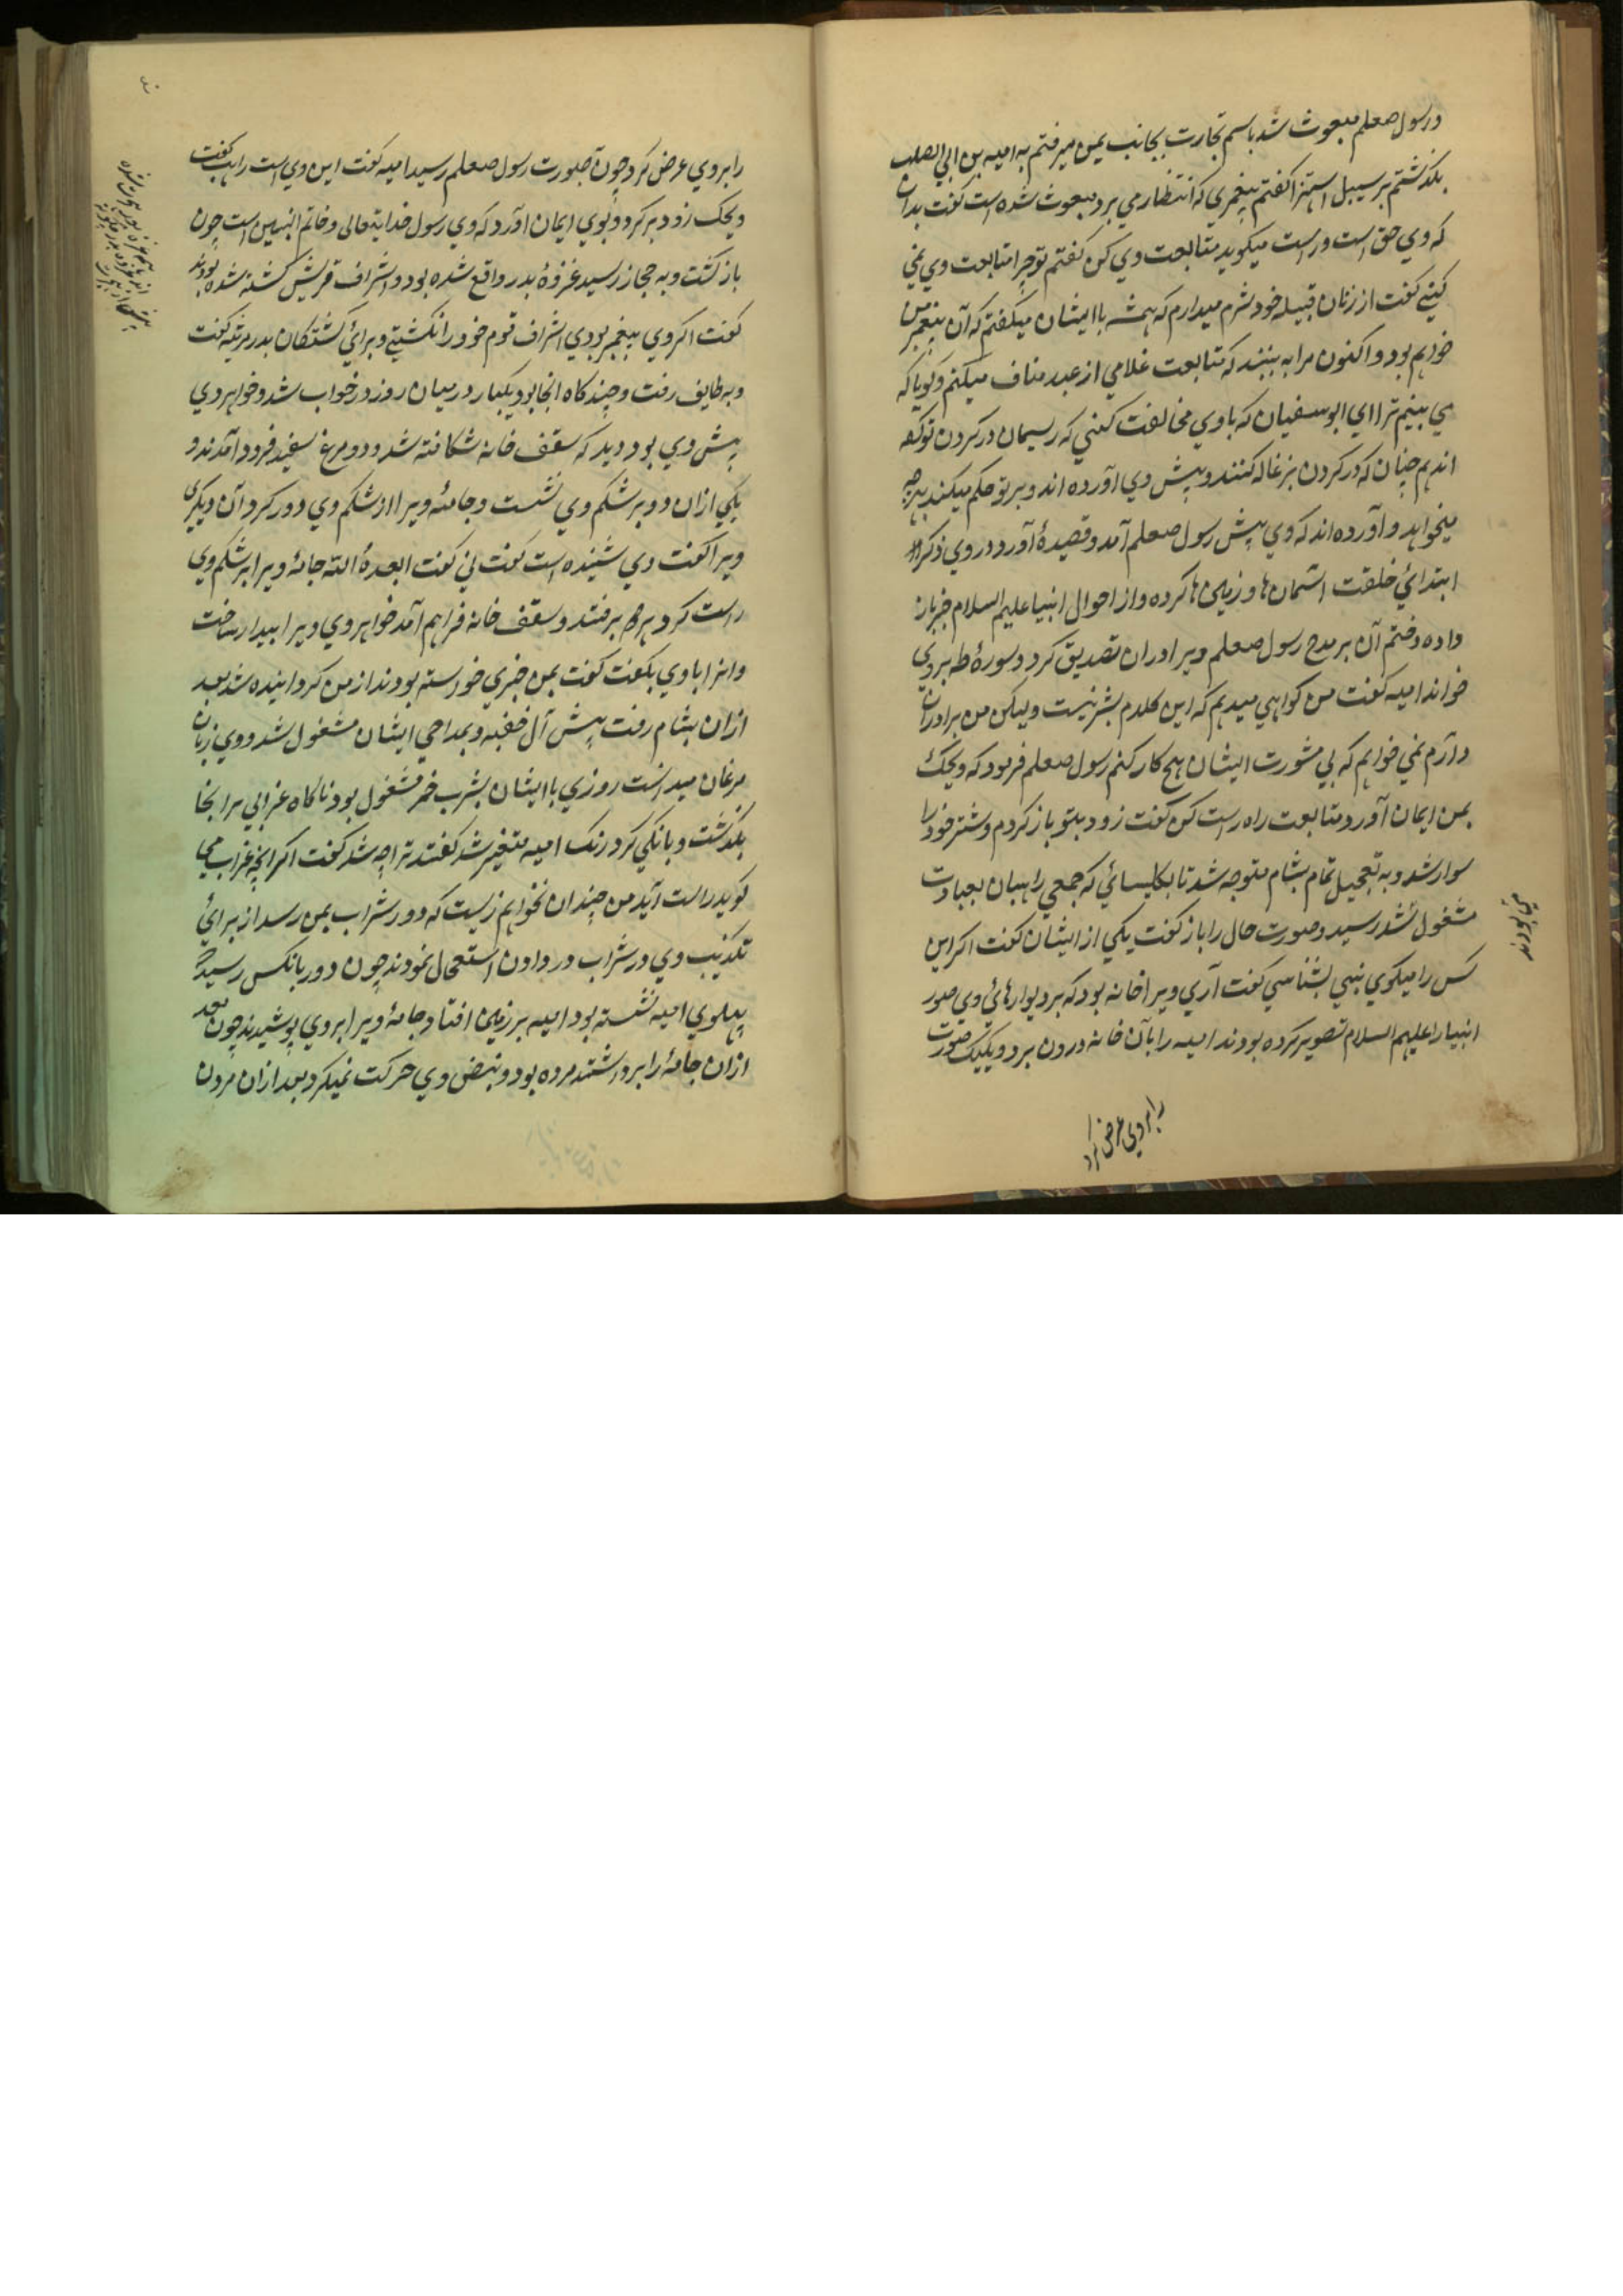 ورسول صعلم مبعوث شد باسم تجارت بجانب یمن میرفتم به امیه بن ابی الصلت
بگذشتم بر سبیل استهزا کفتم پیغمبری که انتظار می برد مبعوث شده است کفت بدان
که وی حق است و راست میکوید متابعت وی کن کفتم تو چرا متابعت وی نمی
کنی کفت از زنان قبیله خود شرم میدارم که همیشه با ایشان میکفتم که آن پیغمبر من
خواهم بود و اکنون مرا به بینند که متابعت غلامی از عبد مناف میکنم و کویا که
می بینم ترا ای ابوسفیان که با وی مخالفت کنی که ریسمان در کردن تو کرده
اند همچنان که در کردن بزغاله کنند و پیش وی آورده اند و بر تو حکم میکند بهرچه
میخواهد و آورده اند که وی پیش رسول صعلم آمد و قصیدهٔ آورد در وی ذکر
ابتدائی خلقت اسمان ها و زمین ها کرده و از احوال انبیا علیهم السلام خبر باز
داده و ختم آن بر مدح رسول صعلم ویرا در ان تصدیق کرد و سورهٔ طه بروی
خواند امیه کفت من کواهی میدهم که این کلام بشر نیست ولیکن من برادران
دارم نمی خواهم که بی مشورت ایشان هیچ کار کنم رسول صعلم فرمود که ویحک
بمن ایمان آور و متابعت راه راست کن کفت زود بتو باز کردم و شتر خود را
سوار شد و به تعجیل تمام بشام متوجه شد تا بکلیسائی که جمعی راهبان بعبادت
مشغول شد رسید و صورت حال را باز کفت یکی از ایشان کفت اکر این
کس را میکوی ببینی بشناسی کفت آری ویرا خانه بود که بر دیوارهائ وی صور
انبیا را علیهم السلام تصویر کرده بودند امیه را بآن خانه درون برد و یکیک صورت
را بروی عرض کرد
را بروی عرض کرد چون صورت رسول صعلم رسید امیه کفت این وی است راهب کفت
ویحک زود برکرد و بوی ایمان آور که وی رسول خدایتعالی و خاتم النبیین است چون
باز کشت و به حجاز رسید غزوهٔ بدر واقع شده بود و اشراف قریش کشته شده بودند
کفت اکر وی پیغمبر بودی اشراف قوم خود را نکشتی و برائ کشتکان بدر مرثیه کفت
و به طایف رفت و چند کاه انجا بود یکبار در میان روز در خواب شد و خواهر وی
پیش وی بود دید که سقف خانه شکافته شد و دو مرغ سفید فرود آمدند و
یکی ازان دو بر شکم وی نشست و جامهٔ ویرا از شکم وی دور کرد آن دیکری
ویرا کفت وی شنیده است کفت نی کفت ابعده الله جامهٔ ویرا بر شکم وی
راست کرد هر دو برفتند و سقف خانه فراهم آمد خواهر وی ویرا بیدار ساخت
وانرا با وی بکفت کفت بمن خبری خواسته بودند از من کردانیده شد بعد
ازان بشام رفت پیش آل جفنه و بمداحی ایشان مشغول شد و وی زبان
مرغان میدانست روزی با ایشان بشرب خمر مشغول بود ناکاه غرابی برانجا
بگذشت و بانکی کرد رنک امیه متغیر شد کفتند ترا چه شد کفت اکر انچه غراب می
کوید راست آید من چندان نخواهم زیست که دور شراب بمن رسد از برائ
تکذیب وی در شراب در دادن استعجال نمودند چون دور بانکس رسید که
پهلوی امیه نشسته بود امیه بر زمین افتاد و جامهٔ ویرا بروی پوشیدند چون بعد
ازان جامهٔ را برداشتند مرده بود و نبض وی حرکت نمیکرد بعد ازان مردن